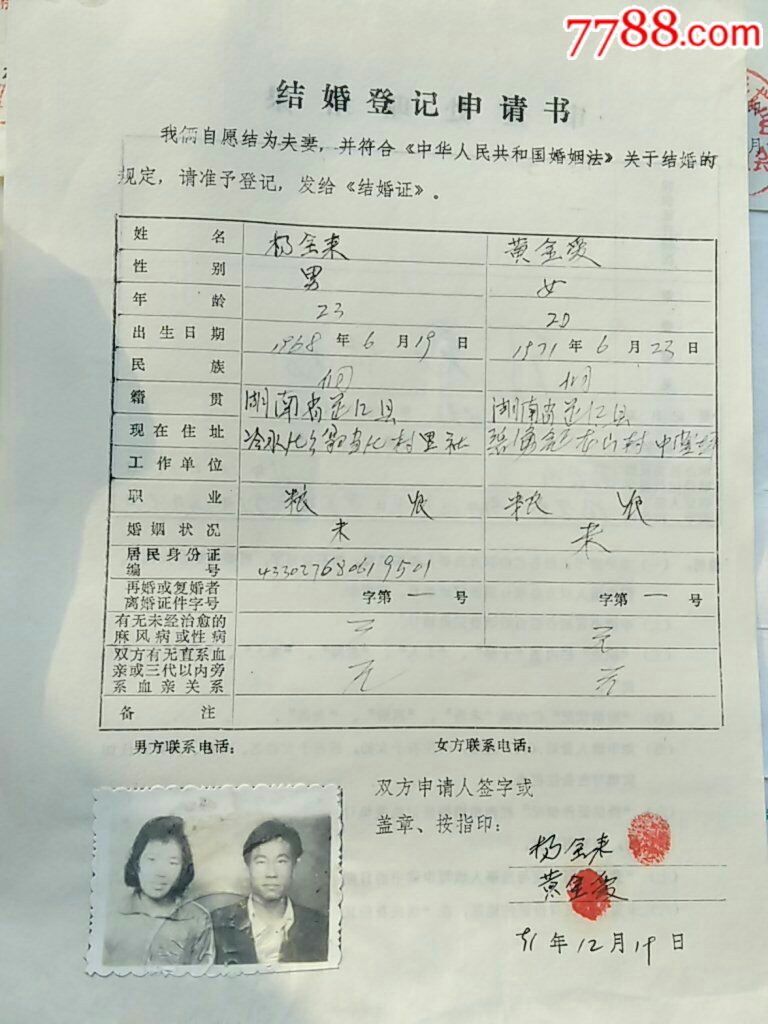 7788.com
结婚登记申请书
我俩自愿结为夫妻，并符合《中华人民共和国婚姻法》关于结婚的
规定，请准予登记，发给《结婚证》。
姓名 杨金来 黄金爱
性别 男 女
年龄 23 20
出生日期 1968年6月19日 1971年6月23日
民族 侗 侗
籍贯 湖南省芷江县 湖南省芷江县
现在住址 冷水 村 社 龙山村中
工作单位
职业 粮农 粮农
婚姻状况 未 未
居民身份证
编号 433027680619501
再婚或复婚者
离婚证件字号 字第一号 字第一号
有无未经治愈的
麻风病或性病 无 无
双方有无直系血
亲或三代以内旁
系血亲关系 无 无
备注
男方联系电话： 女方联系电话：
双方申请人签字或
盖章、按指印：
杨金来
黄金爱
91年12月19日